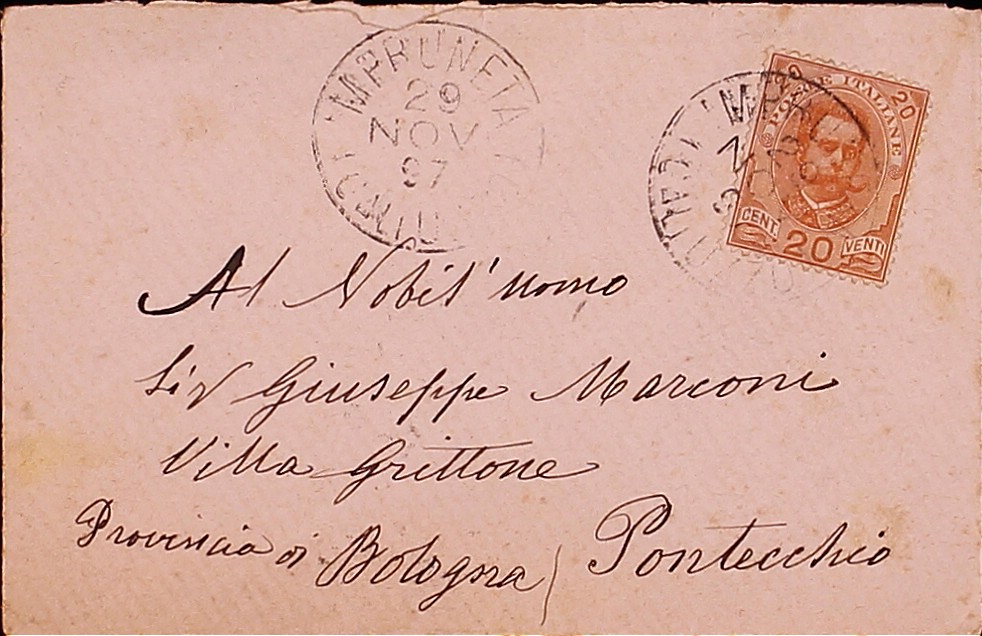 IMPRUNETA
29
NOV
97
POSTE ITALIANE
20
20
CENT. 20 VENTI
Al Nobil' uomo
Sig Giuseppe Marconi
Villa Grittone
Provincia di Bologna / Pontecchio